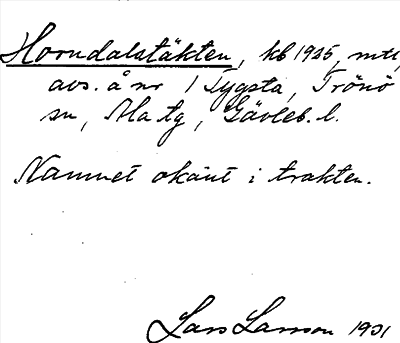 Horndalstäkten, kb 1925, mtl,
avs. å nr 1 Tygsta, Trönö
sn, Ala tg, Gävleb. l.
Namnet okänt i trakten.
Lars Larsson 1931